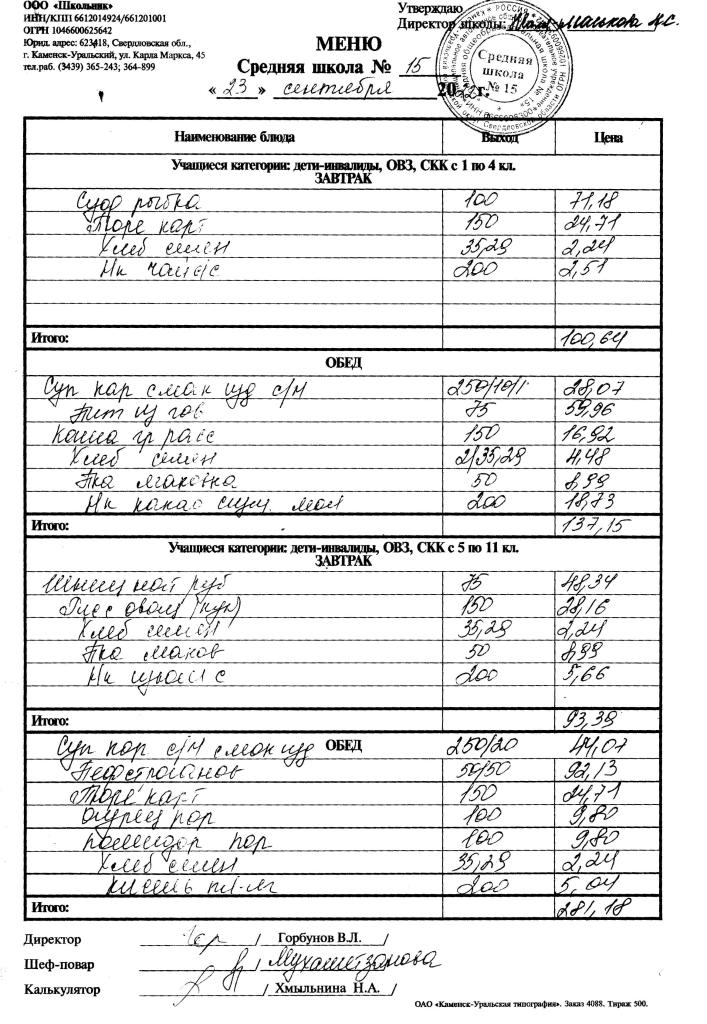 ООО «Школьник»
ИНН/КПП 6612014924/661201001
ОГРН 1046600625642
Юрид. адрес: 623418, Свердловская обл.,
г. Каменск-Уральский, ул. Карла Маркса, 45
тел.раб. (3439) 365-243; 364-899
Утверждаю
Директор школы:
Средняя школа № 15
МЕНЮ
Средняя школа № 15
« 23 » сентября 2022 г.
Наименование блюда Выход Цена
Учащиеся категории: дети-инвалиды, ОВЗ, СКК с 1 по 4 кл.
ЗАВТРАК
Суфл рыбка 100 71,18
Пюре карт 150 24,71
Хлеб семен 35,29 2,24
Нк чай с/с 200 2,51
Итого: 100,64
ОБЕД
Суп кар с мак изд с/м 250/10/1 28,07
Бит из гов 75 59,96
Каша гр расс 150 16,92
Хлеб семен 2/35,29 4,48
Бка маковка 50 8,99
Нк какао сгущ. мол 200 18,73
Итого: 137,15
Учащиеся категории: дети-инвалиды, ОВЗ, СКК с 5 по 11 кл.
ЗАВТРАК
Шниц нат руб 75 48,34
150 28,16
Хлеб семен 35,29 2,24
Бка маков 50 8,99
Нк 200 5,66
Итого: 93,39
ОБЕД
Суп кар с/м с мак изд 250/20 44,07
Бефстроганов 50/50 92,13
Пюре карт 150 24,71
Огурец пор 100 9,80
помидор пор 100 9,80
Хлеб семен 35,29 2,24
кисель пл-яг 200 5,04
Итого: 281,18
Директор / Горбунов В.Л. /
Шеф-повар / Мухаметзянова
Калькулятор / Хмыльнина Н.А. /
ОАО «Каменск-Уральская типография». Заказ 4088. Тираж 500.